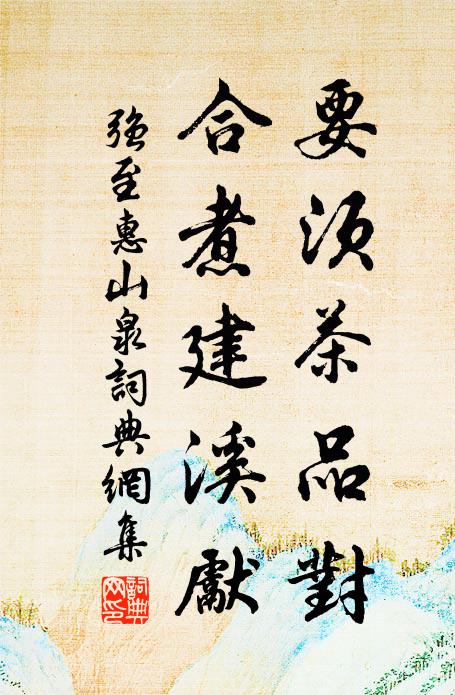 要須茶品對
合煮建溪獻
強至惠山泉詞典網集
詞典網印